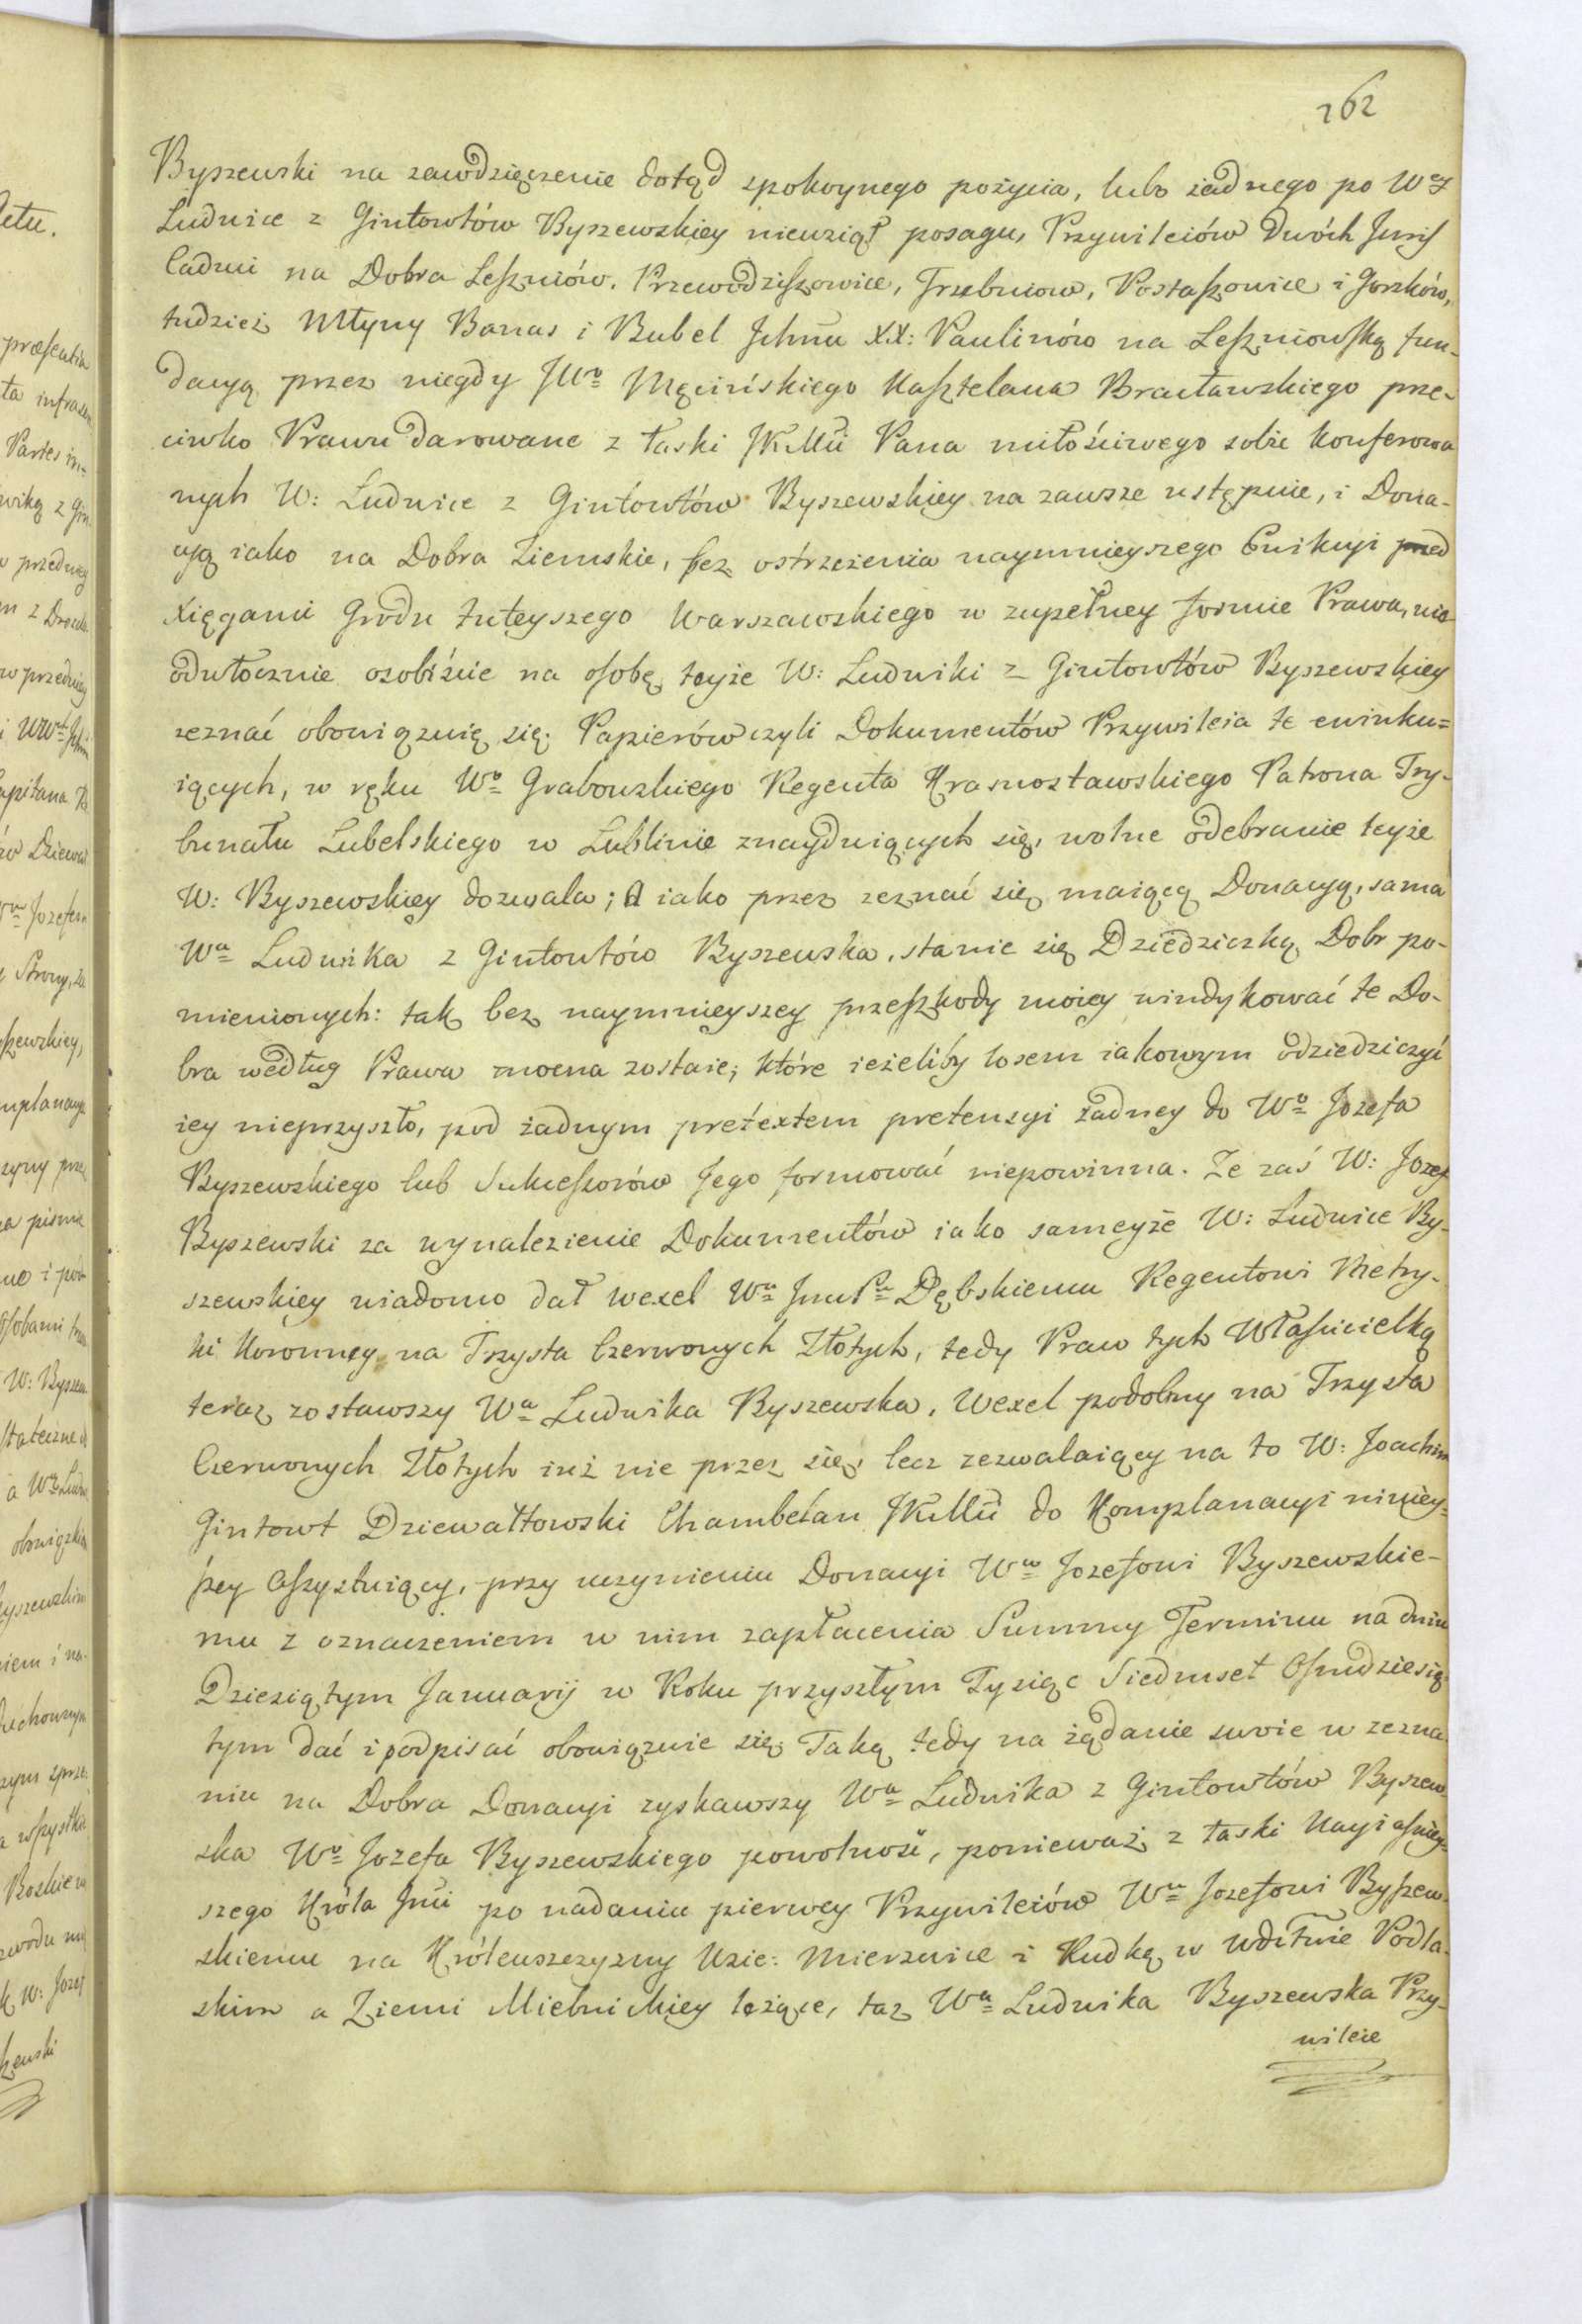 262
Byszewski na zawdzięczenie dotąd spokoynego pożycia, lubo żadnego po Wey
Ludwice z Gintowtów Byszewskiey niewziął posagu, Przywileiów Dwóch Juris
Caduci na Dobra Leszniów, Przewodziszowice, Trzebniow, Postaszowice i Gorzków,
tudzież Młyny Banas i Bubel Ichmc XX: Paulinów na Leszniowską fun-
dacyą przez niegdy JWo Męcińskiego Kasztelana Bracławskiego prze-
ciwko Prawu darowane z łaski JKMci Pana miłościwego sobie konferowa
nych W: Ludwice z Gintowtów Byszewskiey na zawsze ustępuie, i Dona-
cyą iako na Dobra Ziemskie, bez ostrzeżenia naymnieyszego Ewikcyi przed
Xięgami Grodu tuteyszego Warszawskiego w zupełney formie Prawa, nie
odwłocznie osobiście na osobę teyże W: Ludwiki z Gintowtów Byszewskiey
zeznać obowiązuię się. Papierów czyli Dokumentów Przywileia te ewinku=
iących, w ręku Wo Grabowskiego Regenta Krasnostawskiego Patrona Try-
bunału Lubelskiego w Lublinie znayduiących się, wolne odebranie teyże
W: Byszewskiey dozwala; A iako przez zeznać się maiącą Donacyą, sama
Wa Ludwika z Gintowtów Byszewska, stanie się Dziedziczką Dobr po-
mienionych: tak bez naymnieyszey przeszkody moiey windykować te Do-
bra według Prawa mocna zostaie; które ieżeliby losem iakowym odziedziczyć
iey nieprzyszło, pod żadnym pretextem pretensyi żadney do Wo Jozefa
Byszewskiego lub Sukcessorów Jego formować niepowinna. Ze zaś W: Jozef
Byszewski za wynalezienie Dokumentów iako sameyże W: Ludwice By-
szewskiey wiadomo dał wexel Wu JmcPu Dębskiemu Regentowi Metry-
ki Koronney na Trzysta Czerwonych Złotych, tedy Praw tych Właścicielką
teraz zostawszy Wa Ludwika Byszewska, Wexel podobny na Trzysta
Czerwonych Złotych iuż nie przez się, lecz zezwalaiący na to W: Joachim
Gintowt Dziewałtowski Chambelan JKMci do Komplanacyi niniey-
szey Assystuiący, przy uczynieniu Donacyi Wu Jozefowi Byszewskie-
mu z oznaczeniem w nim zapłacenia Summy Terminu na dniu
Dziesiątym Januarij w Roku przyszłym Tysiąc Siedmset Osmdziesią-
tym dać i podpisać obowiązuie się. Taką tedy na żądanie swoie w zezna-
niu na Dobra Donacyi zyskawszy Wa Ludwika z Gintowtów Byszew-
ska Wo Jozefa Byszewskiego powolność, ponieważ z łaski Nayiaśniey-
szego Króla Jmci po nadaniu pierwey Przywileiów Wu Jozefowi Byszew-
skiemu na Królewszczyzny Wsie: Mierzwice i Rudkę w Wdztwie Podla-
skim a Ziemi Mielnickiey leżące, taż Wa Ludwika Byszewska Przy-
wileie